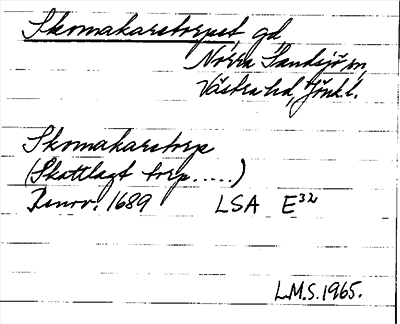 Skomakaretorpet gd
Norra Sandsjö sn,
Västra hd, Jönk. l.
Skomakaretorp
(Skattlagt torp.....)
Renov. 1689 LSA E32
L.M.S. 1965.